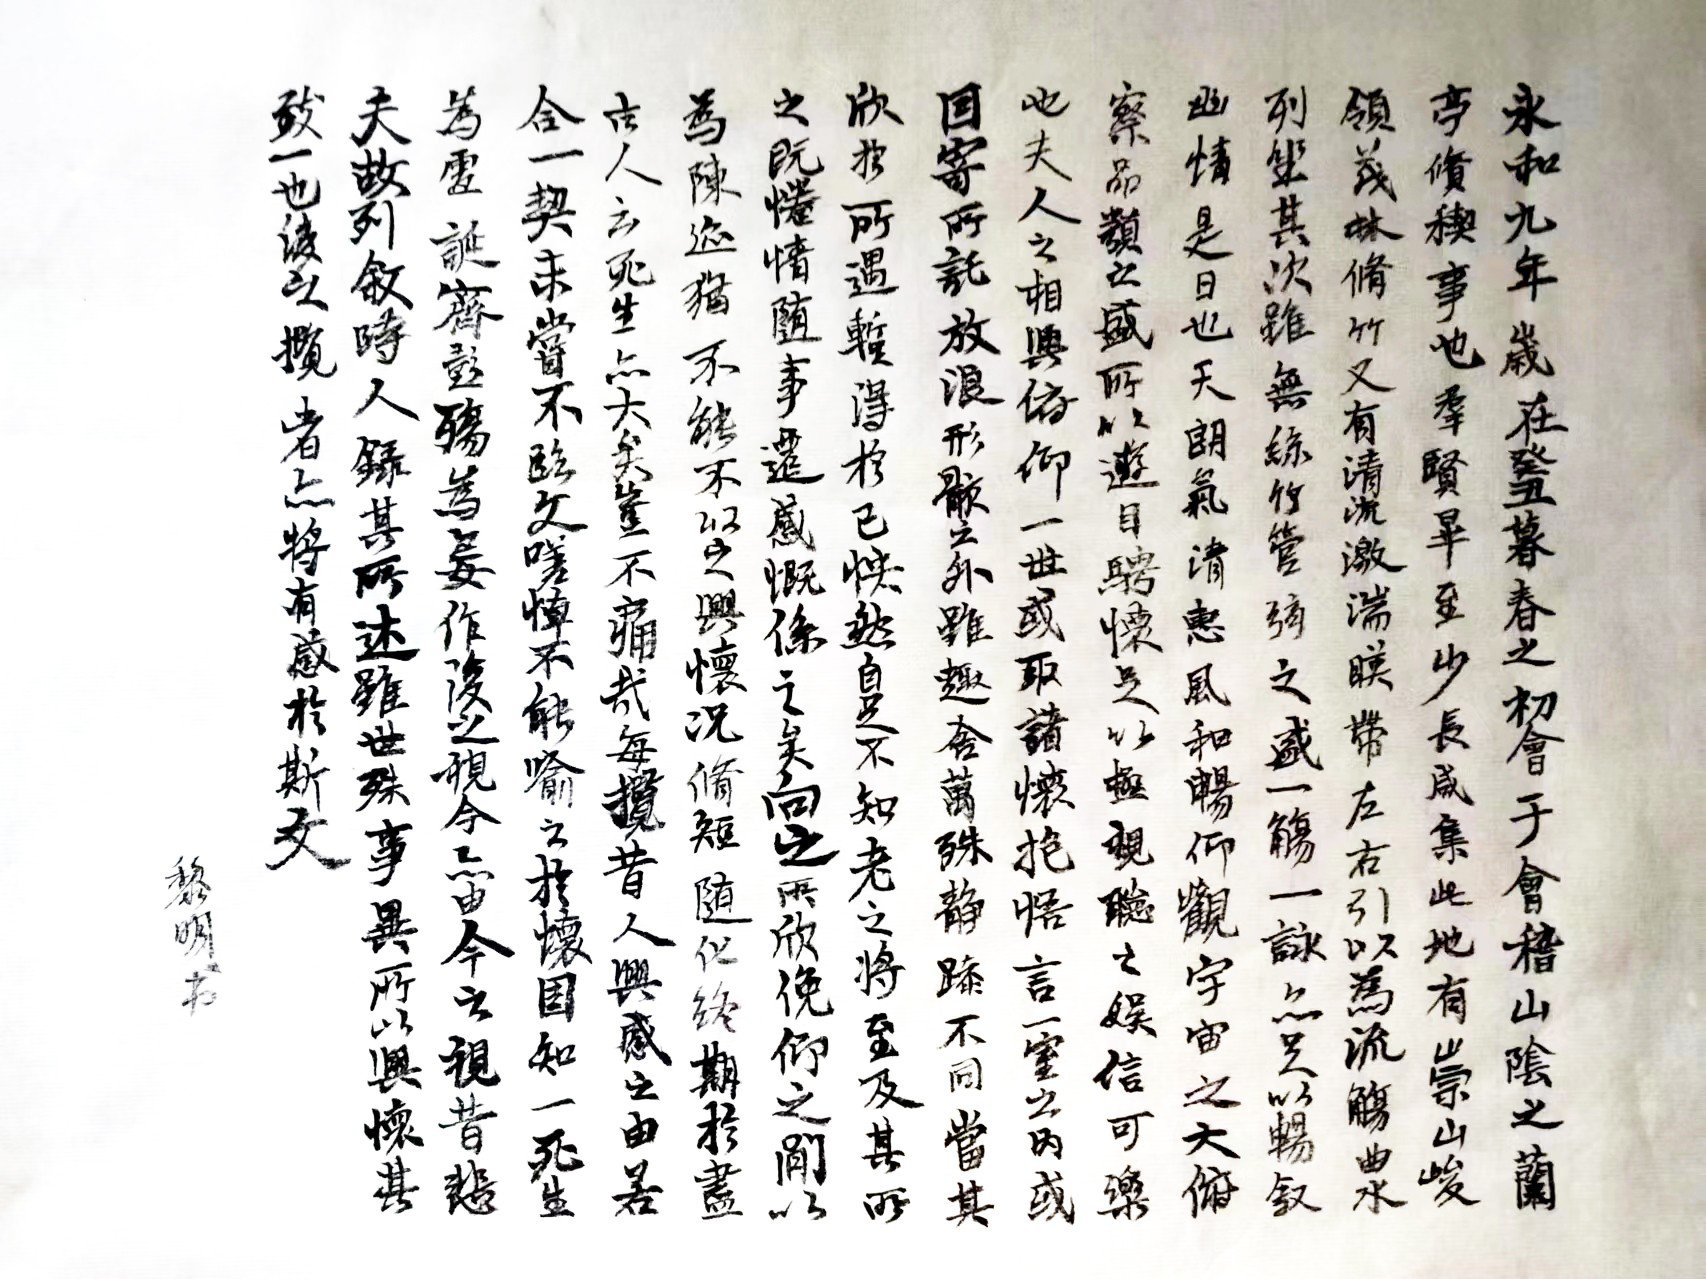 永和九年歲在癸丑暮春之初會于會稽山陰之蘭
亭脩稧事也羣賢畢至少長咸集此地有崇山峻
領茂林脩竹又有清流激湍暎帶左右引以為流觴曲水
列坐其次雖無絲竹管弦之盛一觴一詠亦足以暢叙
幽情是日也天朗氣清惠風和暢仰觀宇宙之大俯
察品類之盛所以遊目騁懷足以極視聽之娛信可樂
也夫人之相與俯仰一世或取諸懷抱悟言一室之內或
因寄所託放浪形骸之外雖趣舍萬殊静躁不同當其
欣於所遇暫得於己怏然自足不知老之將至及其所
之既惓情随事遷感慨係之矣向之所欣俛仰之間以
為陳迹猶不能不以之興懷况脩短随化終期於盡
古人云死生亦大矣豈不痛哉每攬昔人興感之由若
合一契未甞不臨文嗟悼不能喻之於懷固知一死生
為虛誕齊彭殤為妄作後之視今亦由今之視昔悲
夫故列叙時人錄其所述雖世殊事異所以興懷其
致一也後之攬者亦將有感於斯文
黎明书